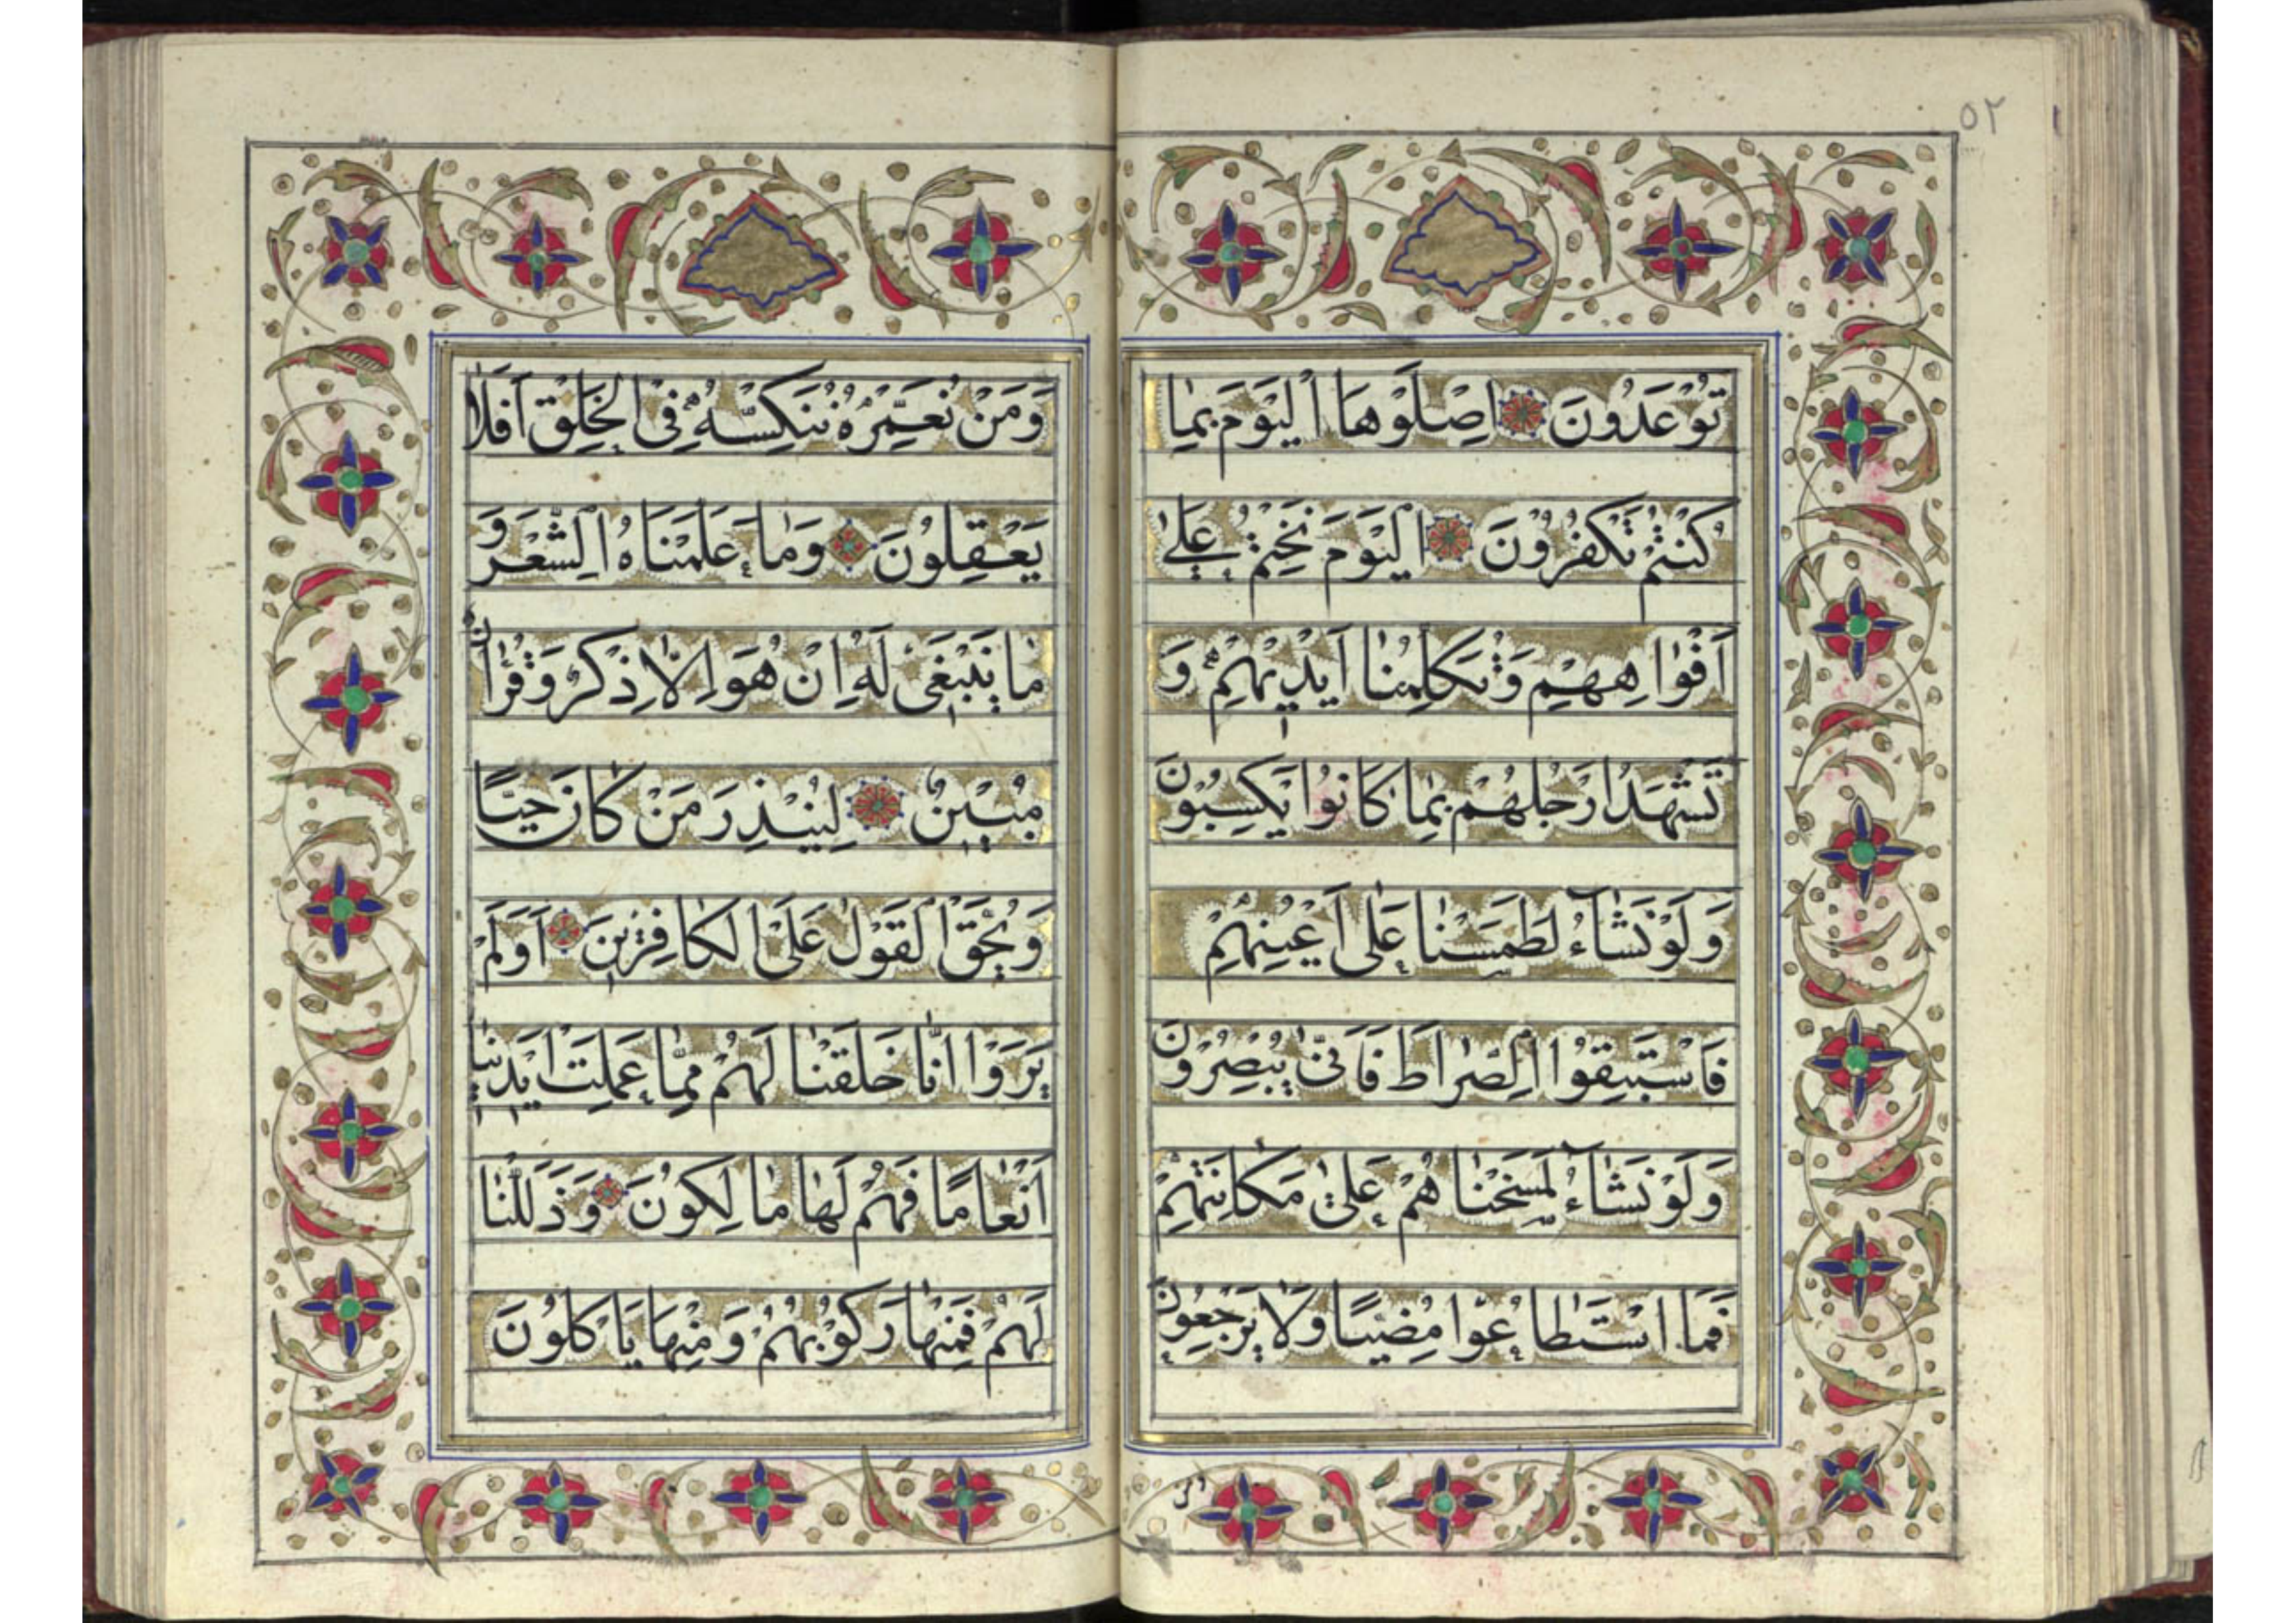 ٥٢
تُوعَدُونَ اِصْلَوْهَا الْيَوْمَ بِمٰا
كُنْتُمْ تَكْفُرُونَ اَلْيَوْمَ نَخْتِمُ عَلٰى
اَفْوٰاهِهِمْ وَتُكَلِّمُنٰا اَيْدِيهِمْ وَ
تَشْهَدُ اَرْجُلُهُمْ بِمٰا كٰانُوا يَكْسِبُونَ
وَلَوْ نَشٰآءُ لَطَمَسْنٰا عَلٰى اَعْيُنِهِمْ
فَاسْتَبَقُوا الصِّرٰاطَ فَاَنّٰى يُبْصِرُونَ
وَلَوْ نَشٰآءُ لَمَسَخْنٰاهُمْ عَلٰى مَكٰانَتِهِمْ
فَمَا اسْتَطٰاعُوا مُضِيًّا وَلٰا يَرْجِعُونَ
وَمَنْ نُعَمِّرْهُ نُنَكِّسْهُ فِى الْخَلْقِ اَفَلٰا
يَعْقِلُونَ وَمٰا عَلَّمْنَاهُ الشِّعْرَ وَ
مٰا يَنْبَغٖى لَهُ اِنْ هُوَ اِلّٰا ذِكْرٌ وَقُرْاٰنٌ
مُبٖينٌ لِيُنْذِرَ مَنْ كٰانَ حَيًّا
وَيَحِقَّ الْقَوْلُ عَلَى الْكٰافِرٖينَ اَوَلَمْ
يَرَوْا اَنّٰا خَلَقْنٰا لَهُمْ مِمّٰا عَمِلَتْ اَيْدٖينٰا
اَنْعٰامًا فَهُمْ لَهٰا مٰالِكُونَ وَذَلَّلْنٰا
لَهُمْ فَمِنْهٰا رَكُوبُهُمْ وَمِنْهٰا يَاْكُلُونَ